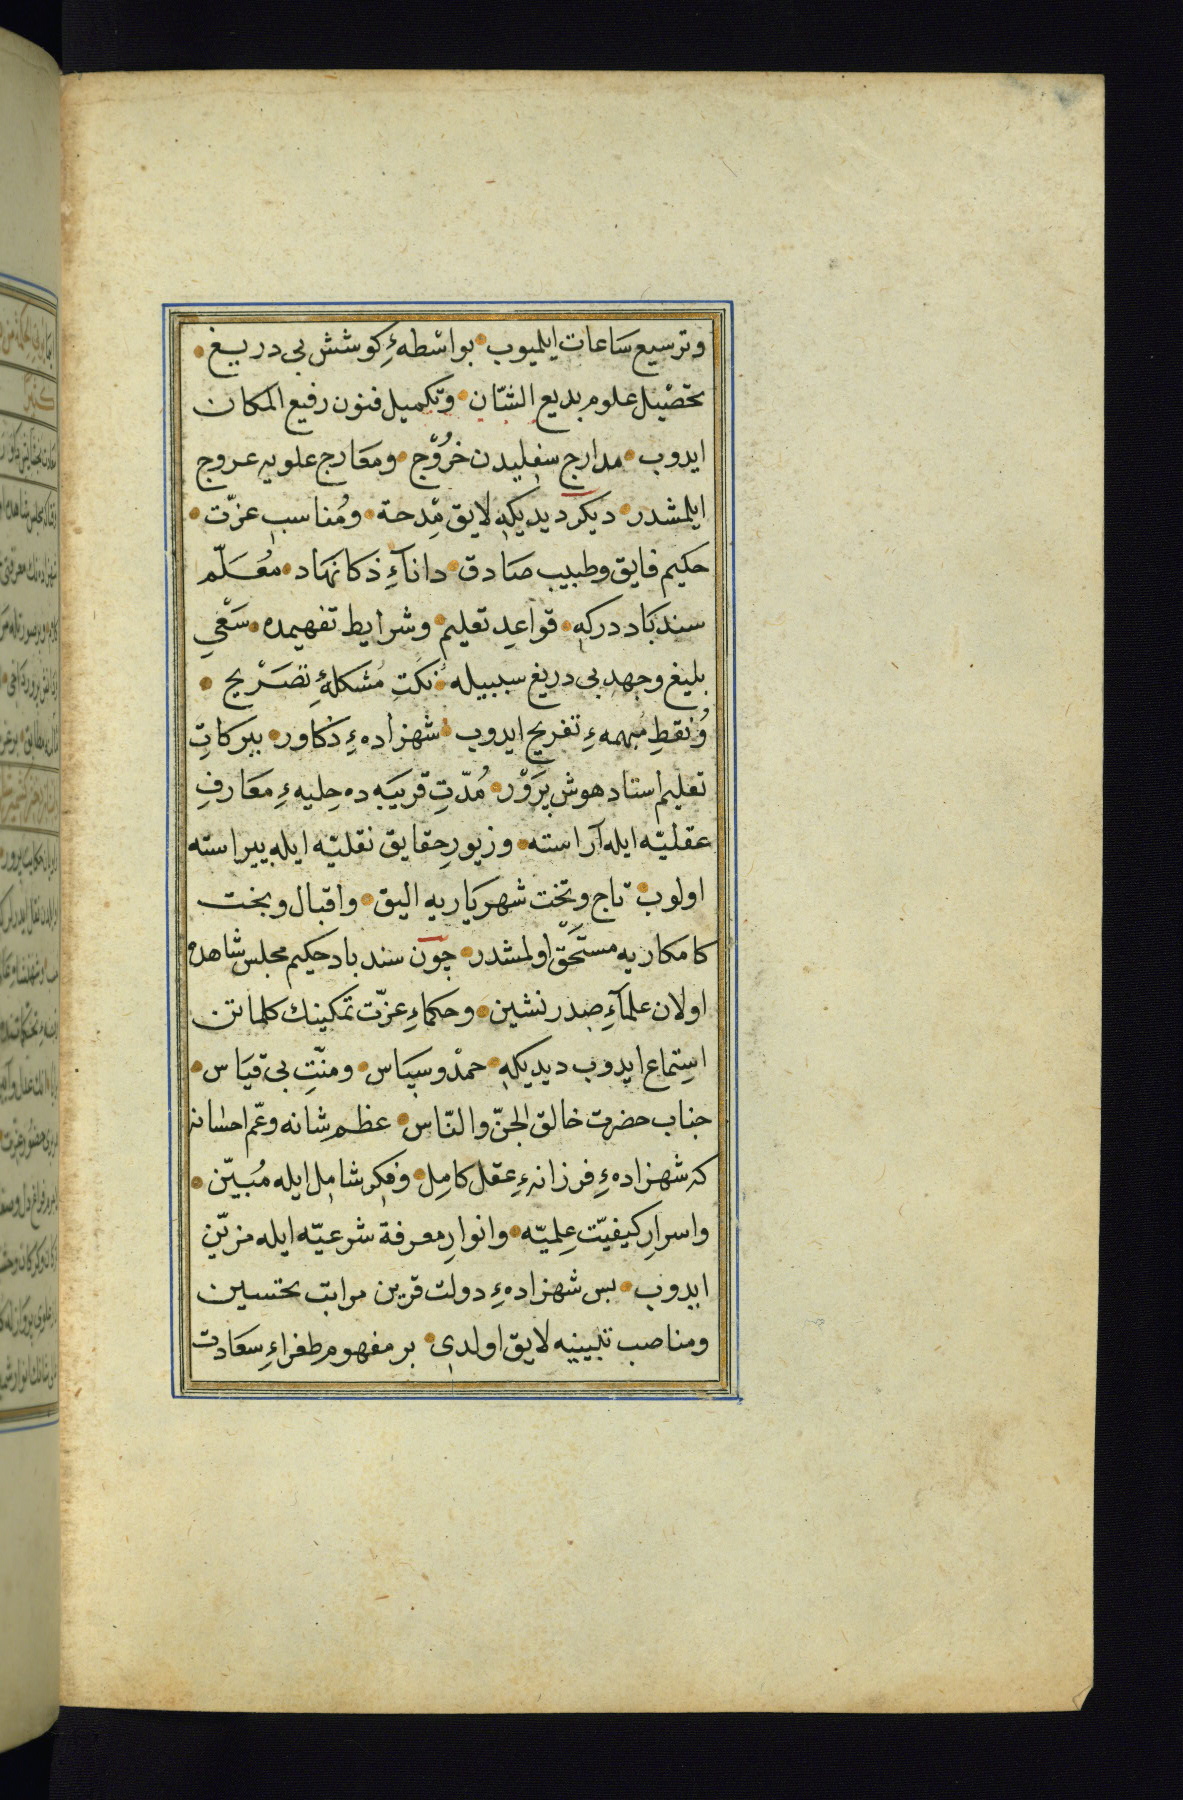 وترسیع ساعات ایلمیوب • بواسطهٔ کوشش بی دریغ •
تحصْیل علوم بدیع الشّان • وتکمیل فنون رفیع المکان
ایدوب • مدارج سفلیدن خرُوْج • ومعارج علویه عروج
ایلمشدر • دیکر دیدیکه لایق مِدحة • ومُناسب عزّت •
حکیم فایق وطبیب صادق • دانآءِ ذکا نهاد • معُلّم
سندباد درکه • قواعدِ تعلیم • وشرایط تفهیمده • سَعْیِ
بلیغ وجهدِ بی دریغ سببیله • نُکتِ مُشکلهٔ تصَرْیح •
ونُقطِ مُبهمهءِ تفریح ایدوب • شهزادهءِ ذکاور • ببرکاتِ
تعلیم استاد هوش پرَوَْر • مُدّتِ قریبَه ده حِلیهءِ معَارفِ
عقلیّه ایله آراسته • وزیورِ حقایق نقلیّه ایله پیراسته
اولوب • تاج وتخت شهریَاریه الیق • واقبال وبخت
کامکاریه مستَحَقّْ اولمشدر • چون سندباد حکیم مجلس شاهده
اولان علمآءِ صدر نشین • وحکماءِ عزّت تمکینك کلماتن
استِماع ایدوب دیدیکه • حمدْ وسپَاس • ومنّتِ بی قیَاس •
جناب حضرت خالق الجنّ والنّاس • عظم شانه وعّم احسانه
که شهزادهءِ فرزانهءِ عقل کامِل • وفکر شامل ایله مُبیّن •
واسرارِ کیفیّت عِلمیّه • وانوارِ معرفة شرعیّه ایله مزیّن
ایدوب • بس شهزادهءِ دولت قرین مراتب تحسین
ومناصب تبیینه لایق اولدی • بر مفهوم طغراءِ سعَادت